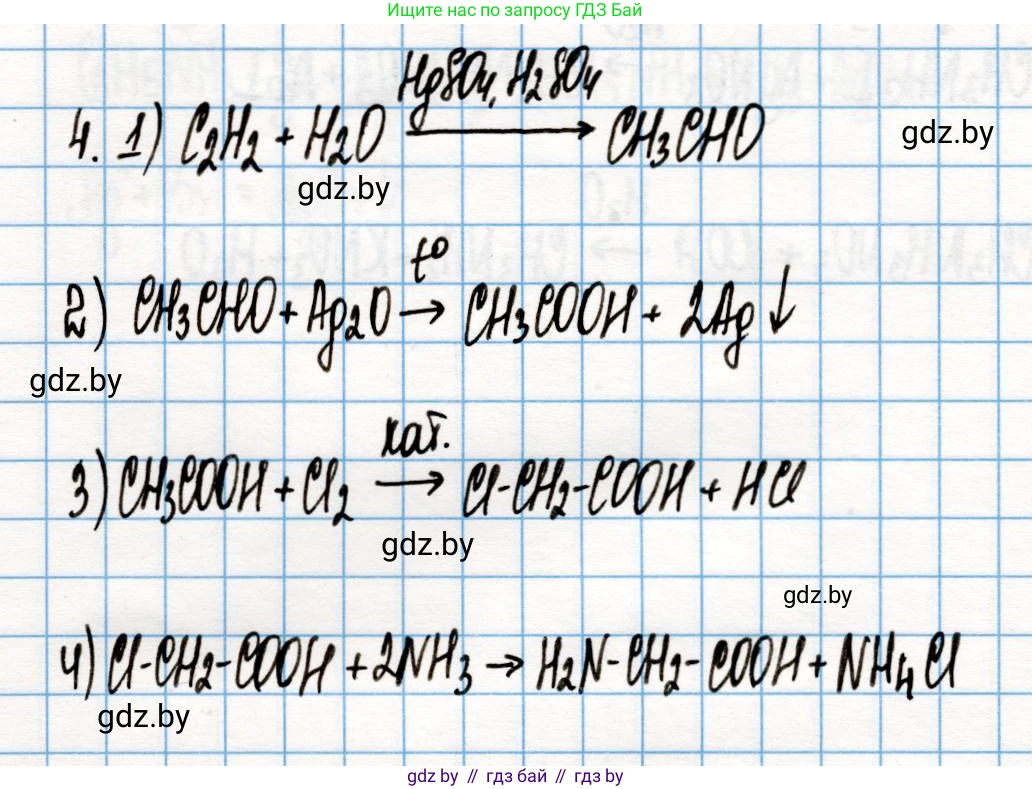 Ищите нас по запросу ГДЗ Бай
HgSO4, H2SO4
4. 1) C2H2 + H2O → CH3CHO
gdz.by
gdz.by
t°
2) CH3CHO + Ag2O → CH3COOH + 2Ag ↓
gdz.by
кат.
3) CH3COOH + Cl2 → Cl-CH2-COOH + HCl
gdz.by
gdz.by
4) Cl-CH2-COOH + 2NH3 → H2N-CH2-COOH + NH4Cl
gdz.by
gdz by // гдз бай // гдз by